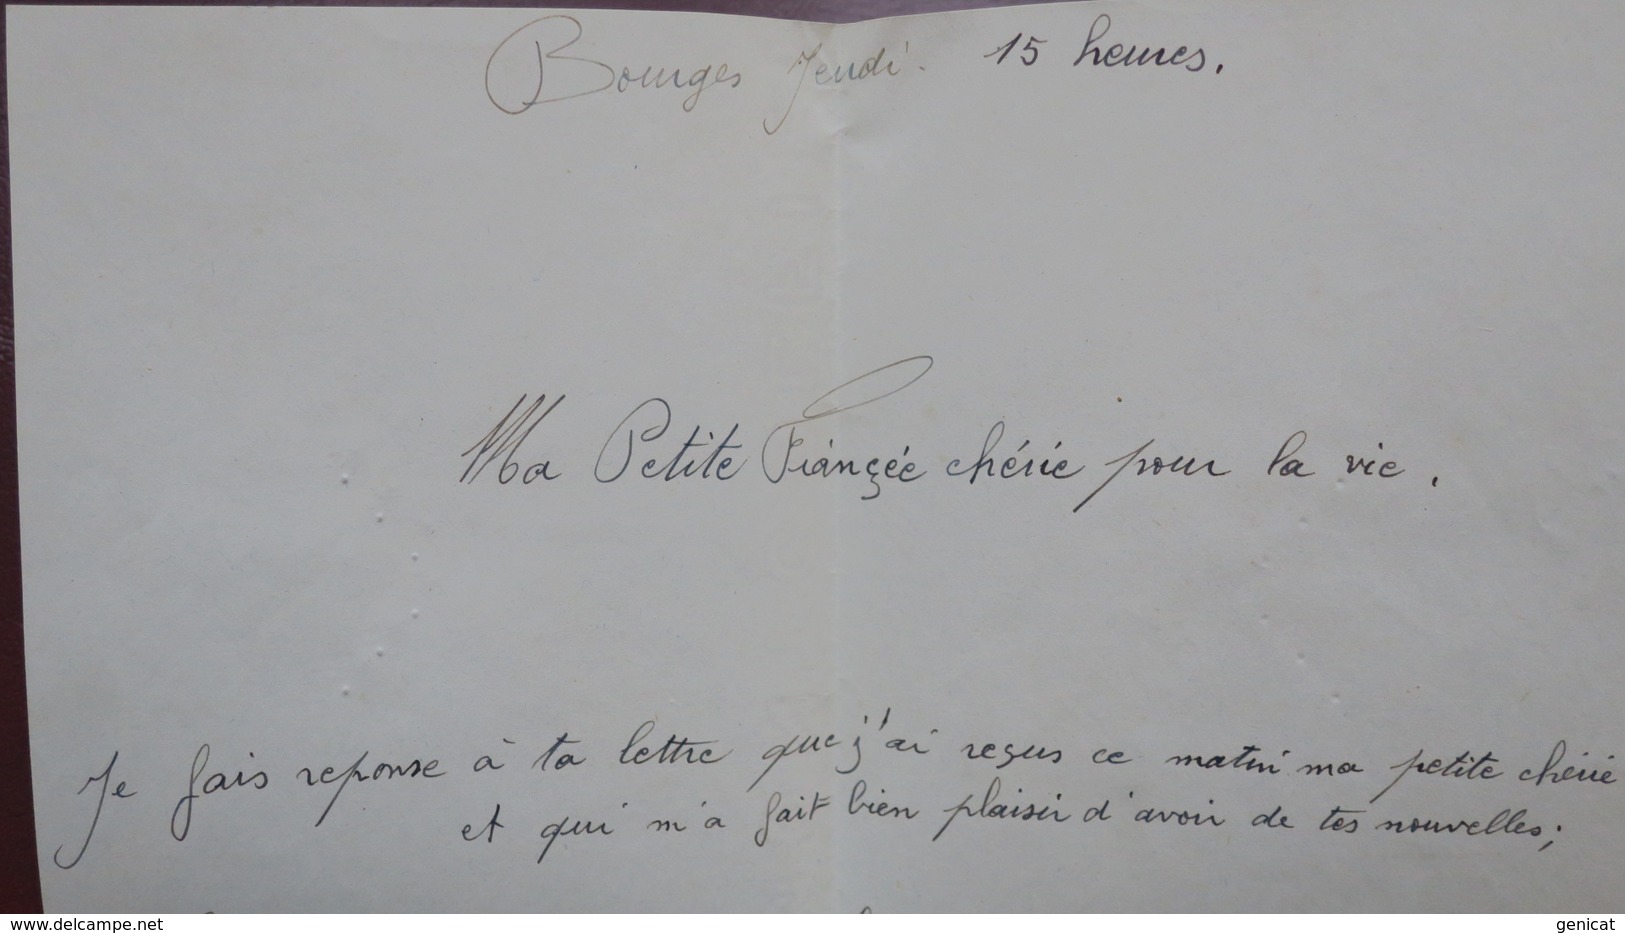 Bourges Jeudi. 15 heures.
Ma Petite Fiançée chérie pour la vie.
Je fais reponse à ta lettre que j'ai reçus ce matin ma petite chérie
et qui m'a fait bien plaisir d'avoir de tes nouvelles;
www.delcampe.net
genicat